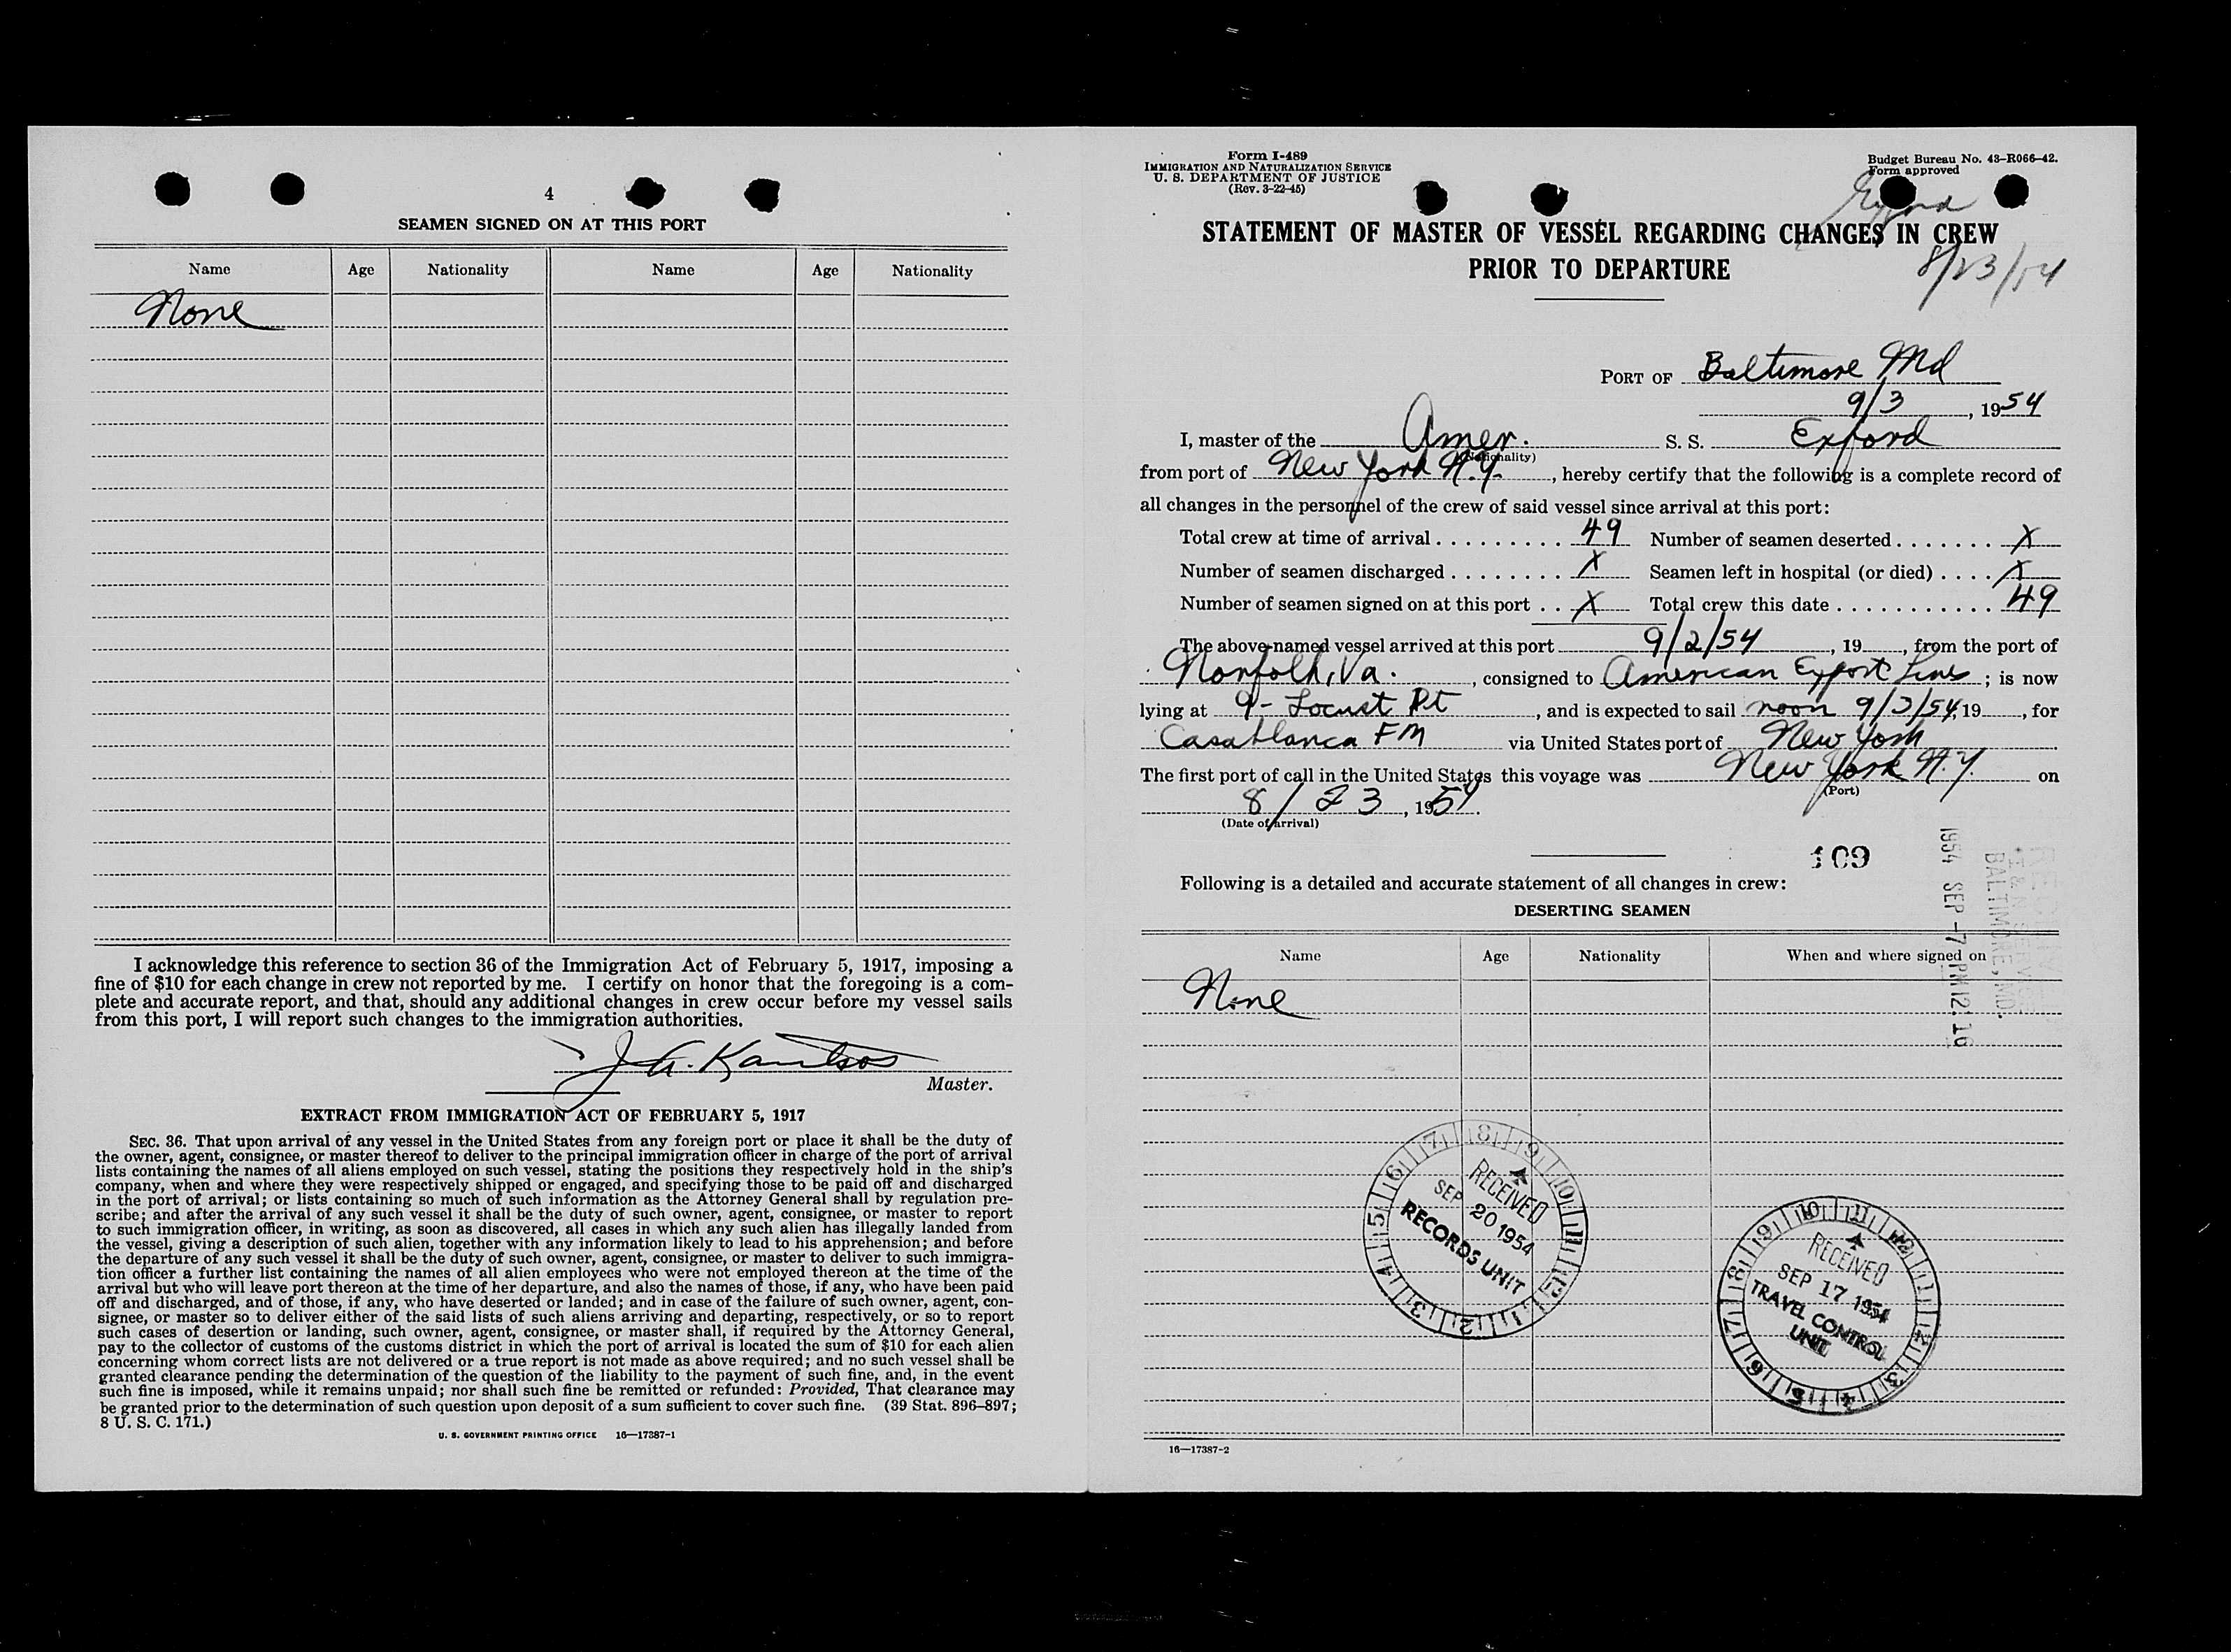 4
SEAMEN SIGNED ON AT THIS PORT
Name Age Nationality Name Age Nationality
None
I acknowledge this reference to section 36 of the Immigration Act of February 5, 1917, imposing a
fine of $10 for each change in crew not reported by me. I certify on honor that the foregoing is a com-
plete and accurate report, and that, should any additional changes in crew occur before my vessel sails
from this port, I will report such changes to the immigration authorities.
Master.
EXTRACT FROM IMMIGRATION ACT OF FEBRUARY 5, 1917
SEC. 36. That upon arrival of any vessel in the United States from any foreign port or place it shall be the duty of
the owner, agent, consignee, or master thereof to deliver to the principal immigration officer in charge of the port of arrival
lists containing the names of all aliens employed on such vessel, stating the positions they respectively hold in the ship's
company, when and where they were respectively shipped or engaged, and specifying those to be paid off and discharged
in the port of arrival; or lists containing so much of such information as the Attorney General shall by regulation pre-
scribe; and after the arrival of any such vessel it shall be the duty of such owner, agent, consignee, or master to report
to such immigration officer, in writing, as soon as discovered, all cases in which any such alien has illegally landed from
the vessel, giving a description of such alien, together with any information likely to lead to his apprehension; and before
the departure of any such vessel it shall be the duty of such owner, agent, consignee, or master to deliver to such immigra-
tion officer a further list containing the names of all alien employees who were not employed thereon at the time of the
arrival but who will leave port thereon at the time of her departure, and also the names of those, if any, who have been paid
off and discharged, and of those, if any, who have deserted or landed; and in case of the failure of such owner, agent, con-
signee, or master so to deliver either of the said lists of such aliens arriving and departing, respectively, or so to report
such cases of desertion or landing, such owner, agent, consignee, or master shall, if required by the Attorney General,
pay to the collector of customs of the customs district in which the port of arrival is located the sum of $10 for each alien
concerning whom correct lists are not delivered or a true report is not made as above required; and no such vessel shall be
granted clearance pending the determination of the question of the liability to the payment of such fine, and, in the event
such fine is imposed, while it remains unpaid; nor shall such fine be remitted or refunded: Provided, That clearance may
be granted prior to the determination of such question upon deposit of a sum sufficient to cover such fine. (39 Stat. 896–897;
8 U. S. C. 171.)
U. S. GOVERNMENT PRINTING OFFICE 16—17387-1
Form I-489
IMMIGRATION AND NATURALIZATION SERVICE
U. S. DEPARTMENT OF JUSTICE
(Rev. 3-22-45)
Budget Bureau No. 43-R066-42.
Form approved
Exford
8/23/54
STATEMENT OF MASTER OF VESSEL REGARDING CHANGES IN CREW
PRIOR TO DEPARTURE
PORT OF Baltimore Md
9/3, 1954
I, master of the Amer. S. S. Exford
(Nationality)
from port of New York N.Y., hereby certify that the following is a complete record of
all changes in the personnel of the crew of said vessel since arrival at this port:
Total crew at time of arrival 49 Number of seamen deserted X
Number of seamen discharged X Seamen left in hospital (or died) X
Number of seamen signed on at this port X Total crew this date 49
The above-named vessel arrived at this port 9/2/54, 19, from the port of
Norfolk, Va., consigned to American Export Lines; is now
lying at 9- Locust Pt, and is expected to sail noon 9/3/54, 19, for
Casablanca FM via United States port of New York
The first port of call in the United States this voyage was New York N.Y. on
(Port)
8/23, 1954.
(Date of arrival)
109
Following is a detailed and accurate statement of all changes in crew:
DESERTING SEAMEN
Name Age Nationality When and where signed on
None
BALTIMORE, MD.
1954 SEP -7 PM 12 16
7 8 9 10 11 12 1 2 3 4 5 6
RECEIVED
SEP 20 1954
RECORDS UNIT
10 11 12 1 2 3 4 5 6 7 8 9
RECEIVED
SEP 17 1954
TRAVEL CONTROL
UNIT
16—17387-2